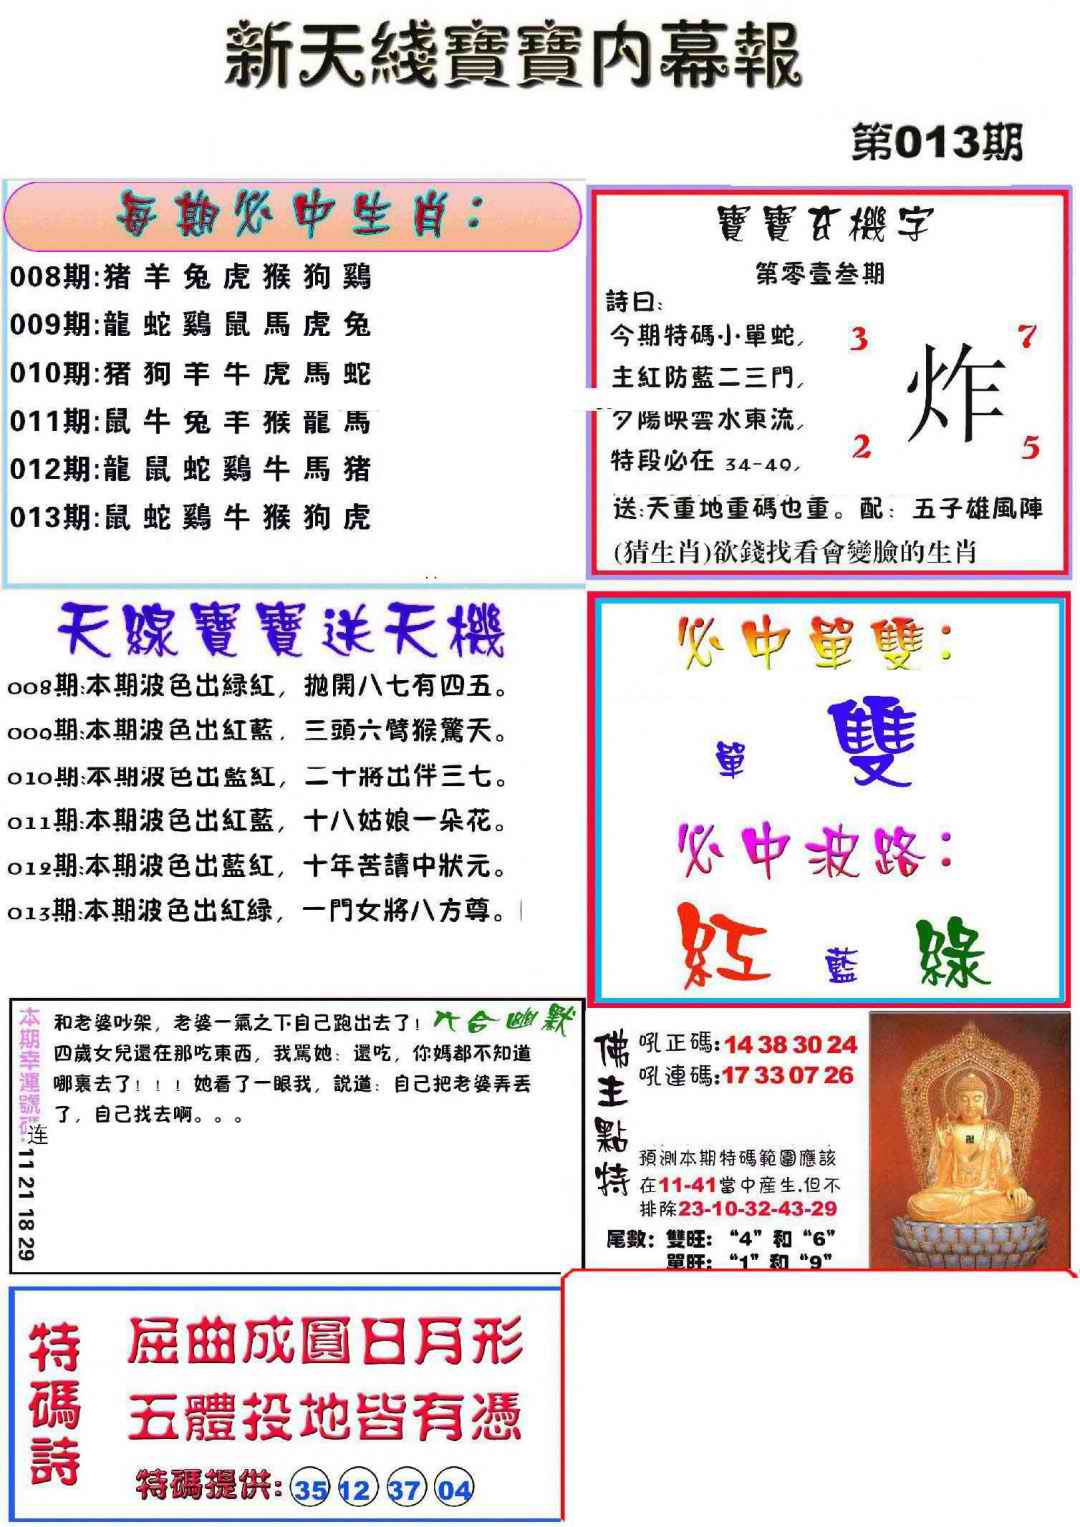 新天綫寶寶内幕報
第013期
每期必中生肖：
008期:猪羊兔虎猴狗鷄
009期:龍蛇鷄鼠馬虎兔
010期:猪狗羊牛虎馬蛇
011期:鼠牛兔羊猴龍馬
012期:龍鼠蛇鷄牛馬猪
013期:鼠蛇鷄牛猴狗虎
寶寶玄機字
第零壹叁期
詩曰:
今期特碼小單蛇,
主紅防藍二三門,
夕陽映雲水東流,
特段必在 34-49,
3 7
炸
2 5
送:天重地重碼也重。配：五子雄風陣
(猜生肖)欲錢找看會變臉的生肖
天線寶寶送天機
008期:本期波色出緑紅，抛開八七有四五。
009期:本期波色出紅藍，三頭六臂猴驚天。
010期:本期波色出藍紅，二十將出伴三七。
011期:本期波色出紅藍，十八姑娘一朵花。
012期:本期波色出藍紅，十年苦讀中狀元。
013期:本期波色出紅緑，一門女將八方尊。
必中單雙：
單 雙
必中波路：
紅 藍 綠
本期幸運號碼:连 11 21 18 29
六合幽默
和老婆吵架，老婆一氣之下自己跑出去了！
四歲女兒還在那吃東西，我駡她：還吃，你媽都不知道
哪裏去了！！！她看了一眼我，説道：自己把老婆弄丢
了，自己找去啊。。。
佛主點特
吼正碼:14 38 30 24
吼連碼:17 33 07 26
預測本期特碼範圍應該
在11-41當中産生.但不
排除23-10-32-43-29
尾數：雙旺：“4”和“6”
單旺：“1”和“9”
特碼詩
屈曲成圓日月形
五體投地皆有憑
特碼提供: 35 12 37 04